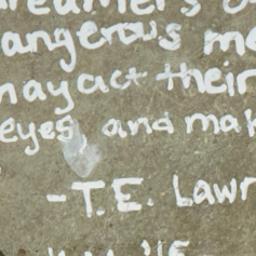 reamers o
angerous me
may act their
eyes and mak
-T.E. Lawr